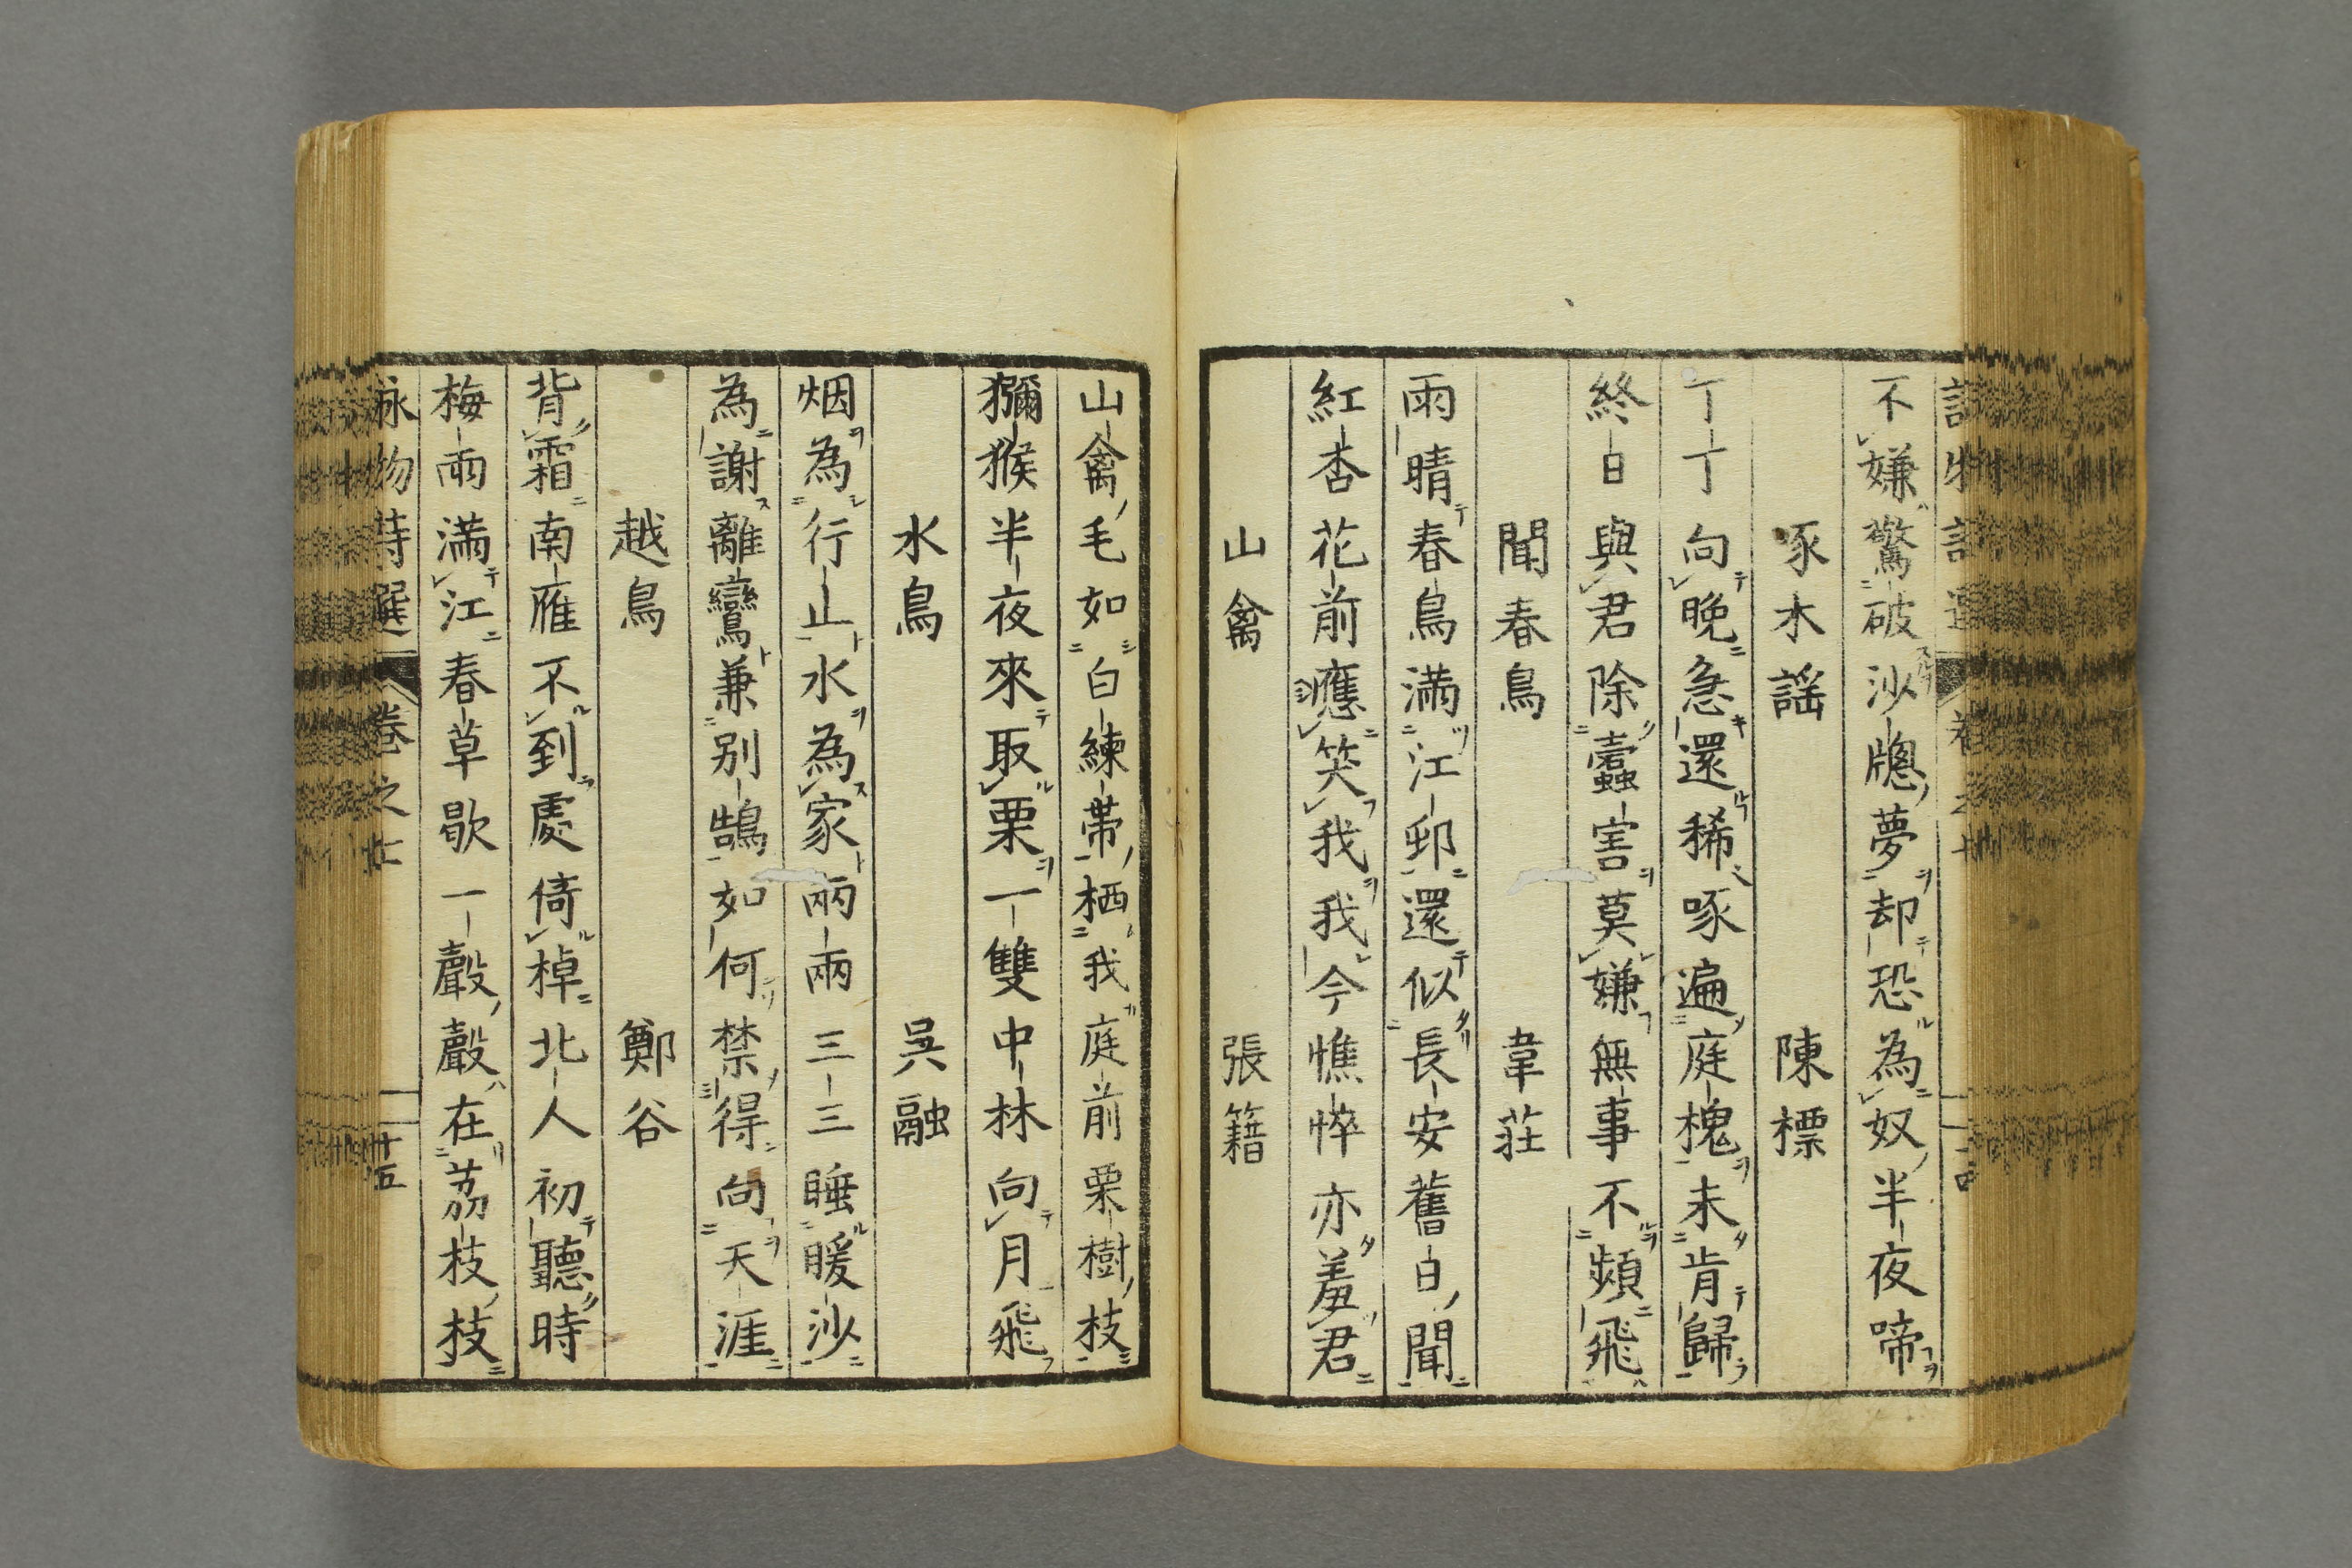 不嫌驚破沙牕夢却恐為奴半夜啼
啄木謡　陳標
丁丁向晚急還稀啄遍庭槐未肯歸
終日與君除蠧害莫嫌無事不頻飛
聞春鳥　韋荘
雨晴春鳥満江邨還似長安舊日聞
紅杏花前應笑我我今憔悴亦羞君
山禽　張籍
山禽毛如白練帯栖我庭前栗樹枝
獼猴半夜來取栗一雙中林向月飛
水鳥　吳融
烟為行止水為家兩兩三三睡暖沙
為謝離鸞兼别鵠如何禁得向天涯
越鳥　鄭谷
背霜南雁不到處倚棹北人初聽時
梅雨満江春草歇一聲聲在茘枝枝
詠物詩選　卷之　十五